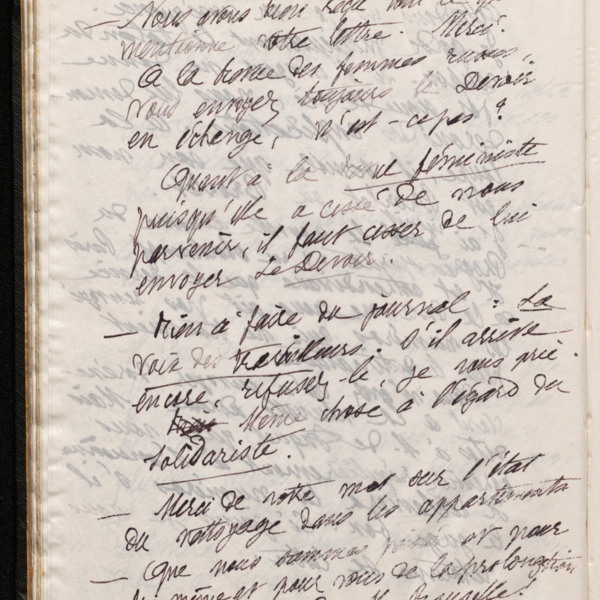 — Nous avons bien reçu tout ce que
mentionne votre lettre. Merci.
A la bourse des femmes russes,
vous envoyez toujours le Devoir
en échange, n'est-ce pas ?
Quant à la revue féministe
puisqu'elle a cessé de nous
parvenir, il faut cesser de lui
envoyer Le Devoir.
— Rien à faire du journal : La
voix des travailleurs. S'il arrive
encore, refusez-le, je vous prie.
Même chose à l'égard du
Solidariste.
— Merci de votre mot sur l'état
du nettoyage dans les appartements
— Que nous sommes et pour
et pour vous de la prolongation